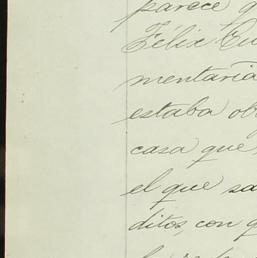 parece q
Félix Cu
mentaria
estaba ob
casa que
el que sa
ditos, con q